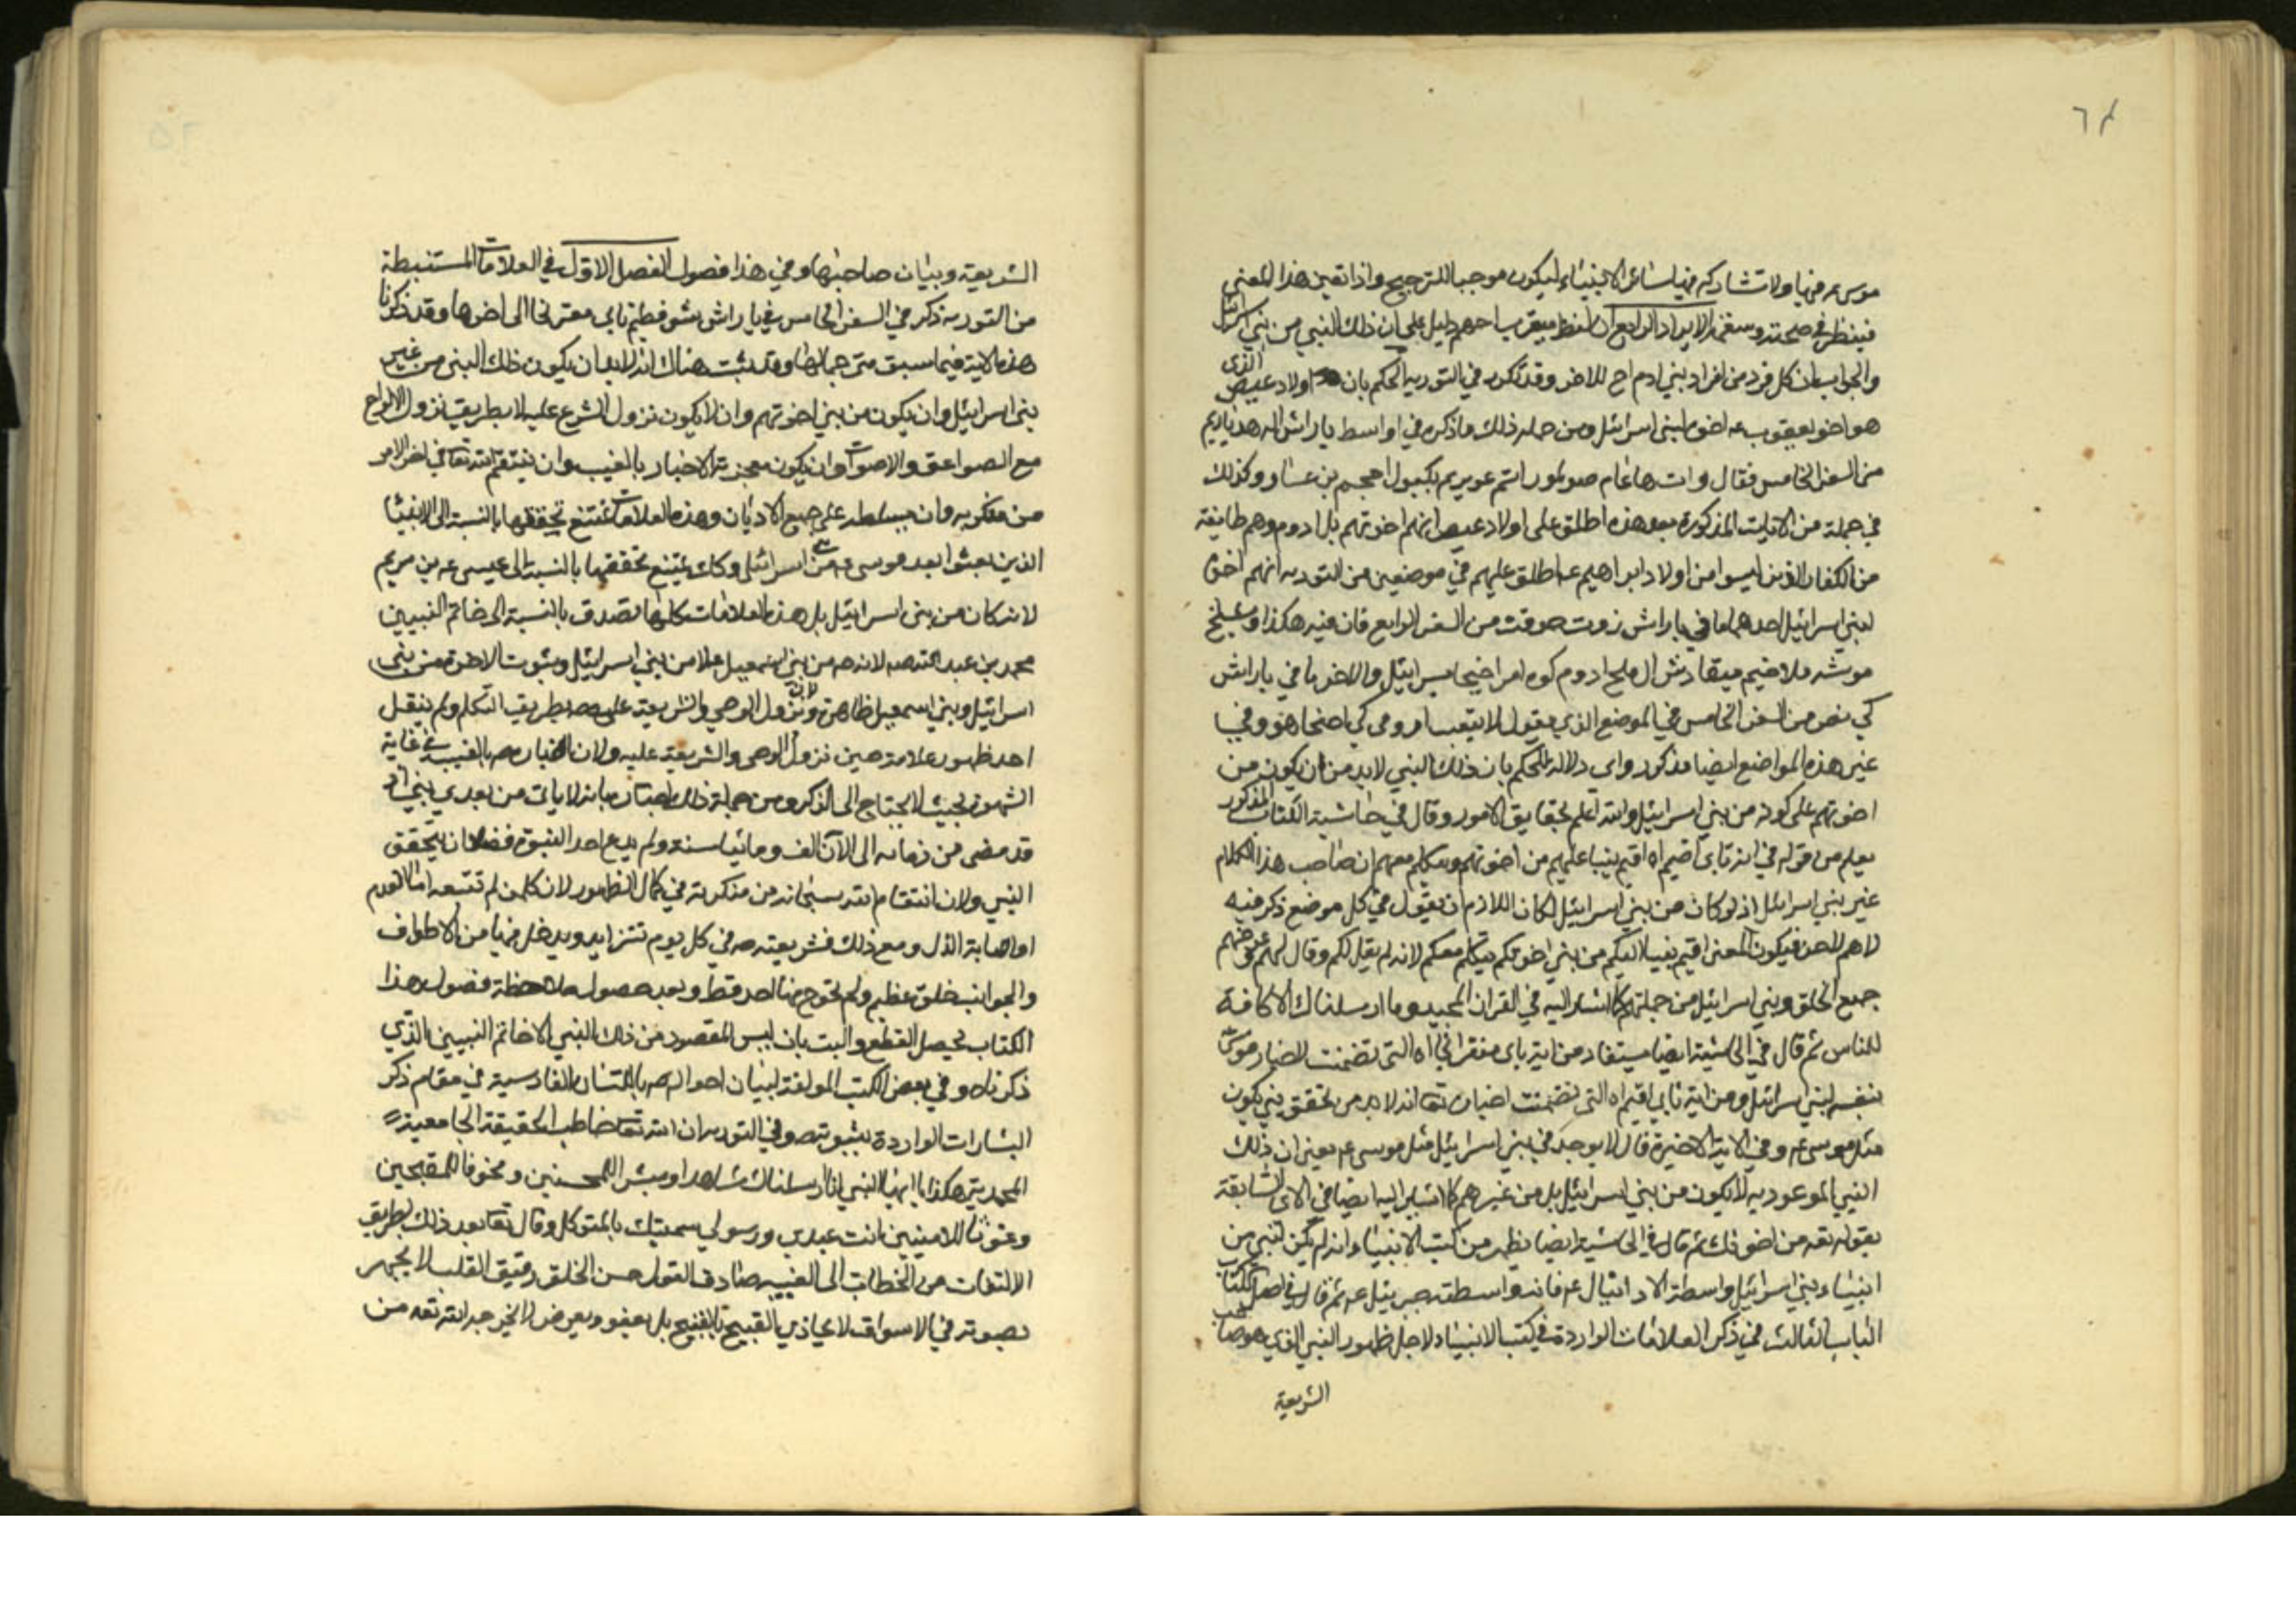 ٦٤
موسى عم فيها ولا تشاركه فيها سائر الانبياء ليكون موجبا للترجيح واذا تعين هذا المعنى
فينظر في صحته وسقمه الايراد الرابع ان لفظ ميقرب احهم دليل على ان ذلك النبي من بني اسرائيل
والجواب ان كل فرد من افراد بني ادم اخ للاخر وقد تكرر في التورية الحكم بان اولاد عيص الذي
هو اخو يعقوب عم اخوة لبني اسرائيل ومن جملة ذلك ما ذكره في اواسط ياراش اله هدباريم
من السفر الخامس فقال وات هاعام صو لمور اتم عوبريم بكبول احيحم بن عساو وكذلك
في جملة من الايات المذكورة بعد هذه اطلق على اولاد عيص انهم اخوتهم بل ادوم وهم طايفة
من الكفار الذين ليسوا من اولاد ابراهيم عم اطلق عليهم في موضعين من التورية انهم اخوة
لبني اسرائيل احدهما ما في ياراش زوت حوقت من السفر الرابع فان فيه هكذا ويشلح
موشه ملاخيم ميقادش ال ملخ ادوم كوه امر احيخا يسرائيل والاخر ما في ياراش
كي تصي من السفر الخامس في الموضع الذي يقول لا تتعب ادومي كي احيخا هو وفي
غير هذه المواضع ايضا مذكور واي دلالة للحكم بان ذلك النبي لابد من ان يكون من
اخوتهم على كونه من بني اسرائيل والله اعلم بحقايق الامور وقال في حاشية الكتاب المذكور
يعلم من قوله في اية نابي اقيم اه اقيم نبيا عليهم من اخوتهم ويتكلم معهم ان صاحب هذا الكلام
غير بني اسرائيل اذ لو كان من بني اسرائيل لكان اللازم ان يقول في كل موضع ذكر فيه
لاهم لاحن فيكون المعنى اقيم نبيا اليكم من بني اخوتكم يتكلم معكم لانه لم يقل لكم وقال لهم
جميع الخلق وبني اسرائيل من جملتهم كما اشار اليه في القران المجيد وما ارسلناك الا كافة
للناس ثم قال في الحاشية ايضا يستفاد من اية نابي مقربخا اه التي تضمنت اخبار موسى
بنفسه لبني اسرائيل ومن اية نابي اقيم اه التي تضمنت اخباره تعا انه لابد من تحقق نبي يكون
مثل موسى عم وفي الاية الاخيرة قال لا يوجد في بني اسرائيل مثل موسى عم يعني ان ذلك
النبي الموعود به لا يكون من بني اسرائيل بل من غيرهم كما اشار اليه ايضا في الاى السابقة
بقوله تعه من اخوتك ثم قال في الحاشية ايضا يظهر من كتب الانبياء انه لم يكن لنبي من
انبياء بني اسرائيل واسطة الا دانيال عم فانه واسطته جبرئيل عم ثم قال في اصل الكتاب
الباب الثالث في ذكر العلامات الواردة في كتب الانبياء لاجل ظهور النبي الذي هو صاحب
الشريعة
الشريعة وبيان صاحبها وفي هذا فصول الفصل الاول في العلامات المستنبطة
من التورية ذكر في السفر الخامس في ياراش شوفطيم نابي مقربخا الى اخرها وقد ذكرنا
هذه الاية فيما سبق مترجما لها وقد ثبت هناك انه لابد ان يكون ذلك النبي من غير
بني اسرائيل وان يكون من بني اخوتهم وان لا يكون نزول الشرع عليه لا بطريق نزول الالواح
مع الصواعق والاصوات وان يكون معجزته الاخبار بالغيب وان ينتقم الله تعا في اخر الامر
من منكريه وان يسلطه على جميع الاديان وهذه العلامات يمتنع تحققها بالنسبة الى الانبيا
الذين بعثوا بعد موسى عم من بني اسرائيل وكذلك يمتنع تحققها بالنسبة الى عيسى عم بن مريم
لانه كان من بني اسرائيل بل هذه العلامات كلها تصدق بالنسبة الى خاتم النبيين
محمد بن عبد الله صم لانه صم من بني اسمعيل لا من بني اسرائيل وثبوت الاخوة بين بني
اسرائيل وبني اسمعيل ظاهرة ولان نزول الوحي والشريعة عليه صم بطريق التكلم ولم ينقل
احد ظهور علامة حين نزول الوحى والشريعة عليه ولان اخباره صم بالغيب في غاية
الشهرة بحيث لا يحتاج الى الذكر ومن جملة ذلك اخباره بانه لا ياتي من بعدي نبي اذ
قد مضى من زمانه الى الآن الف ومائتا سنة ولم يدع احد النبوة فضلا ان يتحقق
النبي ولان انتقام الله سبحانه من منكريه في كمال الظهور لان كل من لم تتبعه اما انعدم
او اصابه الذل ومع ذلك فشريعته صم في كل يوم تتزايد ويدخل فيها من الاطراف
والجوانب خلق عظيم ولم يخرج منها احد قط وبعد حصول ملاحظة فصول هذا
الكتاب يحصل القطع والبت بان ليس المقصود من ذلك النبي الا خاتم النبيين الذي
ذكرناه وفي بعض الكتب المولفة لبيان احواله صم باللسان الفارسية في مقام ذكر
البشارات الواردة بنبوته صم في التورية ان الله تعا خاطب الحقيقة الجامعية
المحمدية هكذا يا ايها النبي انا ارسلناك شاهدا ومبشرا للمحسنين ومخوفا للمقبحين
وغوثا للاميين انت عبدي ورسولي سميتك بالمتوكل وقال تعا بعد ذلك بطريق
الالتفات من الخطاب الى الغيبة صادق القول حسن الخلق رقيق القلب لا يجهر
بصوته في الاسواق لا يجاذي القبيح بالقبيح بل يعفو ويعرض لا يخرجه الله تعه من